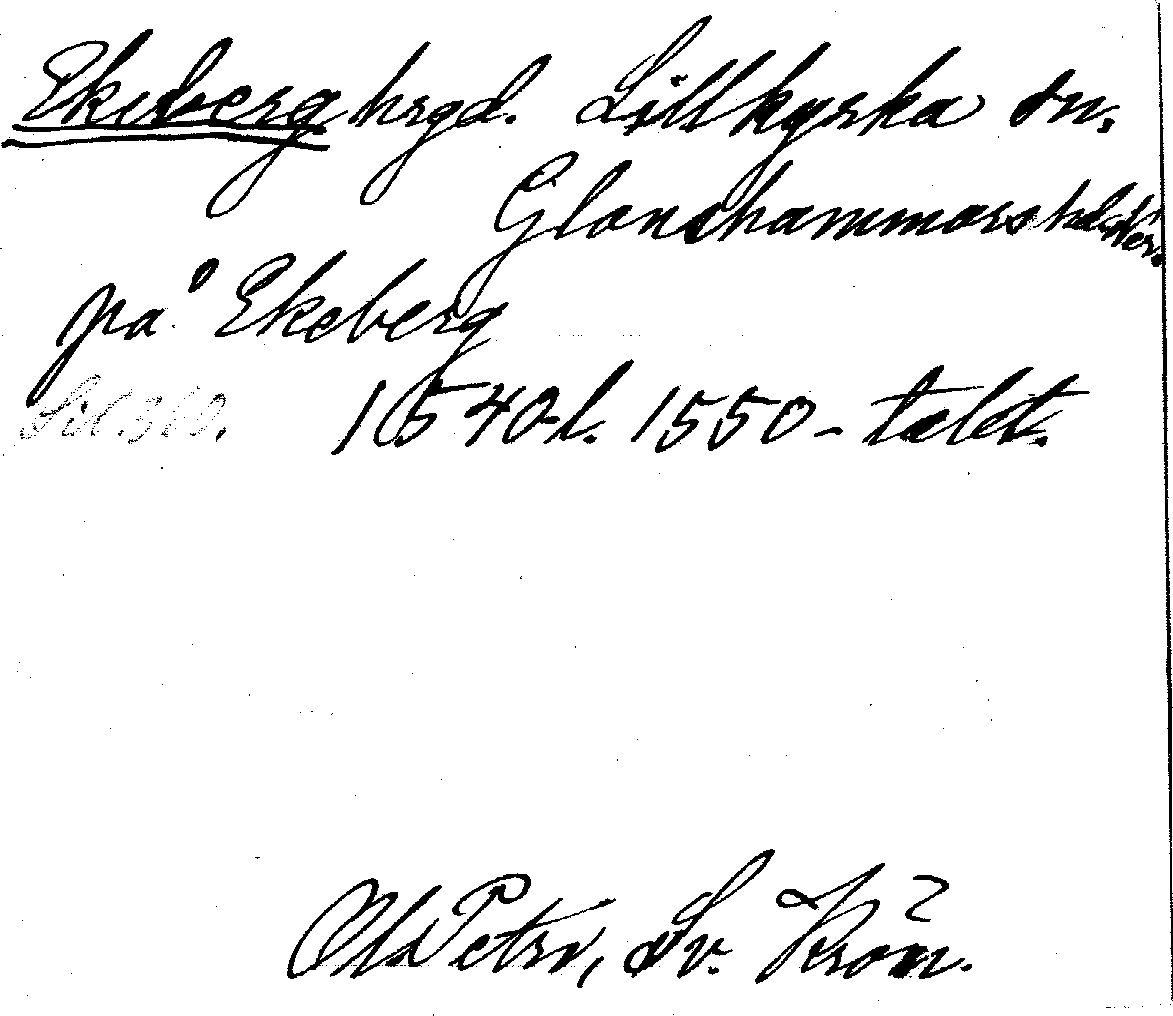 Ekeberg hrgd. Lillkyrka sn.
Glanshammars hd. Ner.
på Ekeberg
Sid. 310. 1540-l. 1550-talet.
Ol. Petri, Sv. Krön.